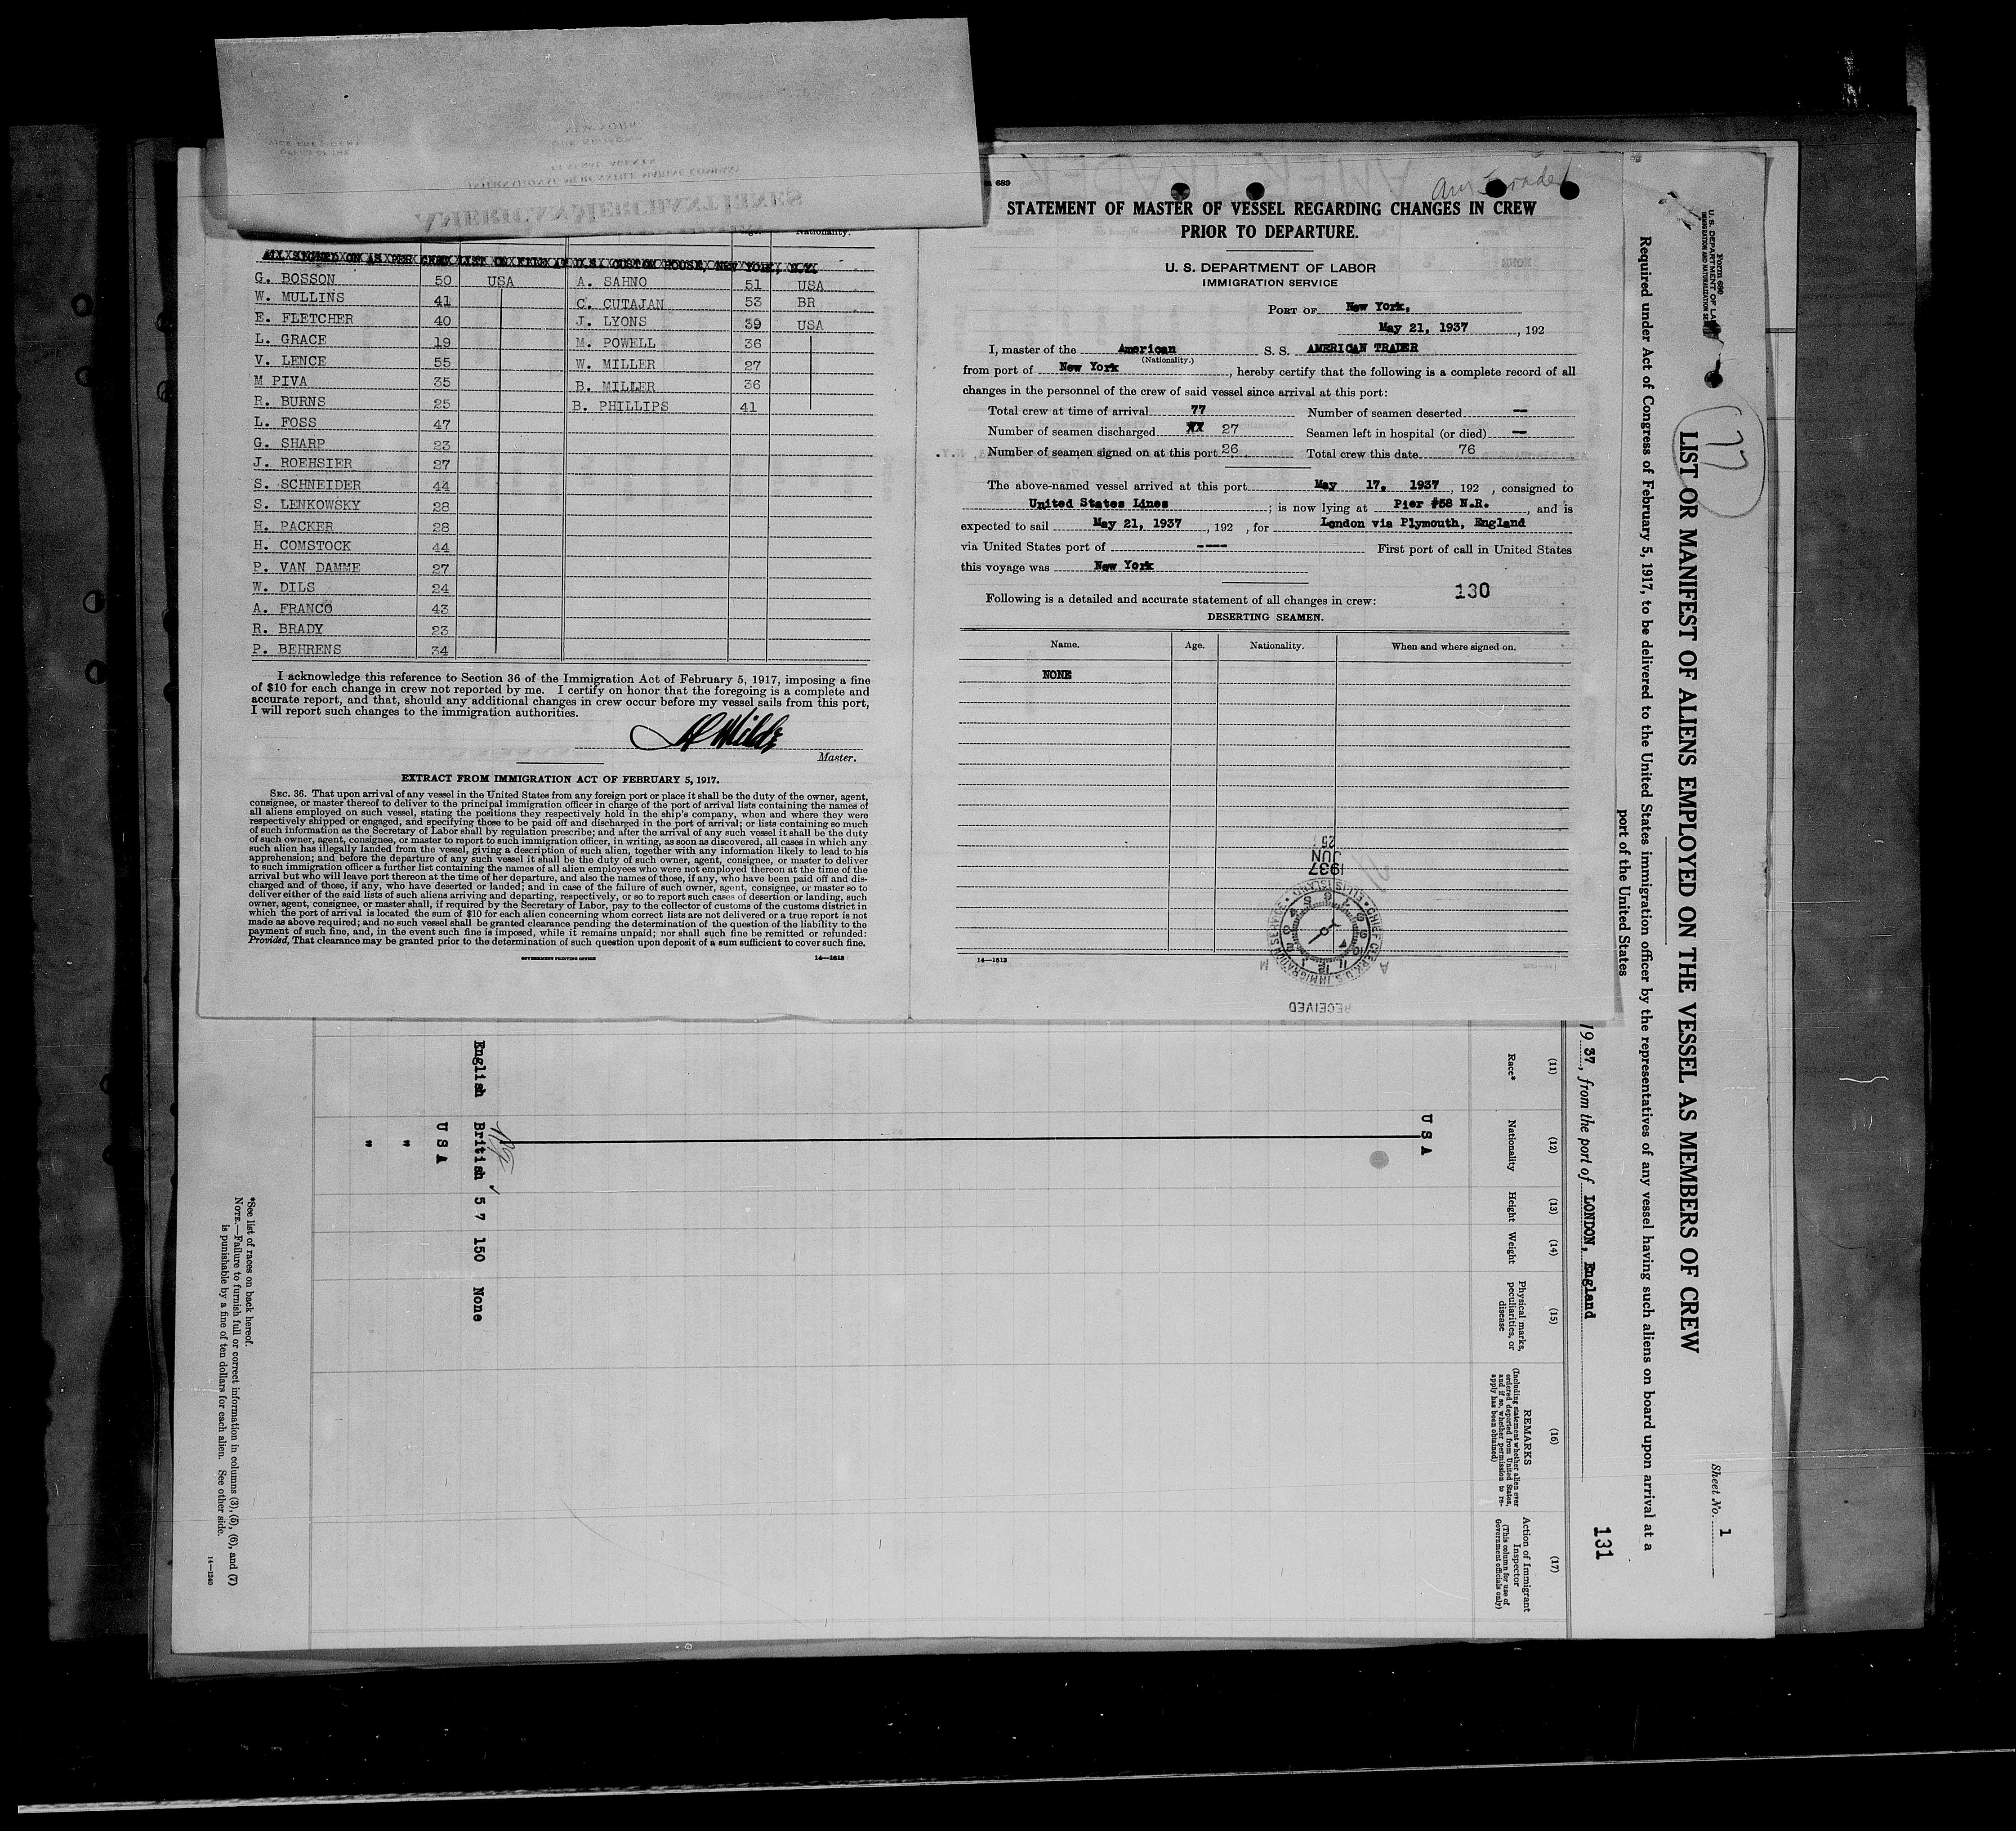 AMERICAN MERCHANT LINES
INTERNATIONAL MERCANTILE MARINE COMPANY
GENERAL AGENTS
ONE BROADWAY
NEW YORK
OFFICE OF THE
VICE PRESIDENT
Nationality.
ALL SIGNED ON AS PER CREW LIST ON FILE AT U.S. CUSTOM HOUSE, NEW YORK, N.Y.
G. BOSSON 50 USA A. SAHNO 51 USA
W. MULLINS 41 C. CUTAJAN 53 BR
E. FLETCHER 40 J. LYONS 39 USA
L. GRACE 19 M. POWELL 36
V. LENCE 55 W. MILLER 27
M PIVA 35 B. MILLER 36
R. BURNS 25 B. PHILLIPS 41
L. FOSS 47
G. SHARP 23
J. ROEHSIER 27
S. SCHNEIDER 44
S. LENKOWSKY 28
H. PACKER 28
H. COMSTOCK 44
P. VAN DAMME 27
W. DILS 24
A. FRANCO 43
R. BRADY 23
P. BEHRENS 34
I acknowledge this reference to Section 36 of the Immigration Act of February 5, 1917, imposing a fine
of $10 for each change in crew not reported by me. I certify on honor that the foregoing is a complete and
accurate report, and that, should any additional changes in crew occur before my vessel sails from this port,
I will report such changes to the immigration authorities.
Master.
EXTRACT FROM IMMIGRATION ACT OF FEBRUARY 5, 1917.
SEC. 36. That upon arrival of any vessel in the United States from any foreign port or place it shall be the duty of the owner, agent,
consignee, or master thereof to deliver to the principal immigration officer in charge of the port of arrival lists containing the names of
all aliens employed on such vessel, stating the positions they respectively hold in the ship's company, when and where they were
respectively shipped or engaged, and specifying those to be paid off and discharged in the port of arrival; or lists containing so much
of such information as the Secretary of Labor shall by regulation prescribe; and after the arrival of any such vessel it shall be the duty
of such owner, agent, consignee, or master to report to such immigration officer, in writing, as soon as discovered, all cases in which any
such alien has illegally landed from the vessel, giving a description of such alien, together with any information likely to lead to his
apprehension; and before the departure of any such vessel it shall be the duty of such owner, agent, consignee, or master to deliver
to such immigration officer a further list containing the names of all alien employees who were not employed thereon at the time of the
arrival but who will leave port thereon at the time of her departure, and also the names of those, if any, who have been paid off and dis-
charged and of those, if any, who have deserted or landed; and in case of the failure of such owner, agent, consignee, or master so to
deliver either of the said lists of such aliens arriving and departing, respectively, or so to report such cases of desertion or landing, such
owner, agent, consignee, or master shall, if required by the Secretary of Labor, pay to the collector of customs of the customs district in
which the port of arrival is located the sum of $10 for each alien concerning whom correct lists are not delivered or a true report is not
made as above required; and no such vessel shall be granted clearance pending the determination of the question of the liability to the
payment of such fine, and, in the event such fine is imposed, while it remains unpaid; nor shall such fine be remitted or refunded:
Provided, That clearance may be granted prior to the determination of such question upon deposit of a sum sufficient to cover such fine.
GOVERNMENT PRINTING OFFICE 14—1613
689
Am Trader
STATEMENT OF MASTER OF VESSEL REGARDING CHANGES IN CREW
PRIOR TO DEPARTURE.
U. S. DEPARTMENT OF LABOR
IMMIGRATION SERVICE
PORT OF New York,
May 21, 1937, 192
I, master of the American S. S. AMERICAN TRADER
(Nationality.)
from port of New York, hereby certify that the following is a complete record of all
changes in the personnel of the crew of said vessel since arrival at this port:
Total crew at time of arrival 77 Number of seamen deserted —
Number of seamen discharged 27 Seamen left in hospital (or died) —
Number of seamen signed on at this port 26 Total crew this date 76
The above-named vessel arrived at this port May 17, 1937, 192 , consigned to
United States Lines; is now lying at Pier #58 N.R., and is
expected to sail May 21, 1937, 192 , for London via Plymouth, England
via United States port of ---- First port of call in United States
this voyage was New York
130
Following is a detailed and accurate statement of all changes in crew:
DESERTING SEAMEN.
Name. Age. Nationality. When and where signed on.
NONE
1937
JUN
25
CHIEF CLERK, U.S. IMMIGRATION SERVICE • ELLIS ISLAND •
A M
RECEIVED
14—1613
Form 680
U. S. DEPARTMENT OF LABOR
IMMIGRATION AND NATURALIZATION SERVICE
77
Sheet No. 1
LIST OR MANIFEST OF ALIENS EMPLOYED ON THE VESSEL AS MEMBERS OF CREW
Required under Act of Congress of February 5, 1917, to be delivered to the United States immigration officer by the representatives of any vessel having such aliens on board upon arrival at a
port of the United States
131
19 37, from the port of LONDON, England
(11) (12) (13) (14) (15) (16) (17)
Race* Nationality Height Weight Physical marks, peculiarities, or disease
REMARKS
(Including statement whether alien ever ordered deported from United States, and if so, whether permission to re-apply has been obtained)
Action of Immigrant Inspector
(This column for use of Government officials only)
U S A
English British 5 7 150 None
U S A
"
"
*See list of races on back hereof.
NOTE.—Failure to furnish full or correct information in columns (3), (5), (6), and (7)
is punishable by a fine of ten dollars for each alien. See other side.
14—1240